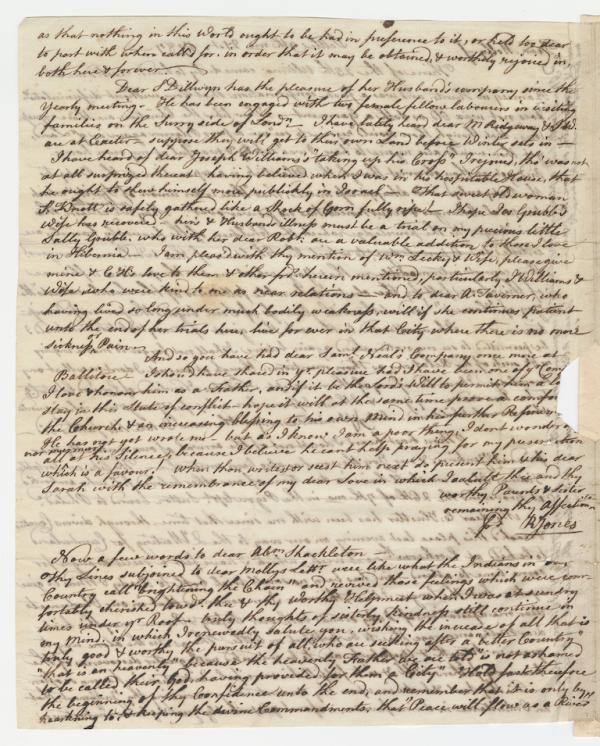 as that nothing in this World ought to be had in preference to it, or held too dear
to part with when called for. in order that it may be obtained, & worthily rejoiced in,
both here & forever.
Dear S Dillwyn has the pleasure of her Husband's company since the
Yearly meeting. He has been engaged with two female fellow labourers in visiting
families on the Surry side of Londn — I have lately heard dear M Ridgway & J W.
are at Exeter — suppose they will get to their own Land before Winter sets in —
I have heard of dear Joseph Williams's "taking up his Cross" I rejoiced, tho' was not
at all surprized thereat having believed when I was in his hospitable House, that
he ought to shew himself more publickly in Israel — That sweet old woman
S. Knott is safely gathered like a Shock of Corn fully ripe! — I hope Jos Grubb's
Wife has recovered — hers & Husbands illness must be a trial on my precious little
Sally Grubb, who with her dear Robt. are a valuable addition to those I love
in Hibernia — I am pleasd with thy mention of Wm Lecky & Wife, please give
mine & C H's love to them & other frds herein mentioned, particularly J Williams &
Wife, who were kind to me as near relations — and to dear A. Taverner, who
having lived so long under much bodily weakness, will if she continues patient
unto the end of her trials here, live for ever in that City where there is no more
sickness, or Pain —
And so you have had dear Saml Neal's Company once more at
Ballitore I should have shared in yr. pleasure had I have been one of yr Com
I love & honour him as a Father, and if it be the Lord's Will to permit him a lo
stay in this State of conflict hope it will at the same time prove a comfort
the Church & an increasing blessing to his own Mind in his further Refinem
He has not yet wrote me — but as I know I am a poor thing, I dont wonder
nor murmur at his Silence, because I believe he cant help praying for my preservation
which is a favour! When thou writest or seest him next do present him & his dear
Sarah with the remembrance of my dear Love in which I salute thee and thy
worthy Parents & Sister
remaining thy Affectionate
Fd. R Jones
Now a few words to dear Abm Shackleton —
Thy Lines subjoined to dear Mollys Lettr were like what the Indians in our
Country call "brightening the Chain" and revived those feelings which were com-
fortably cherished towds. thee & thy worthy Helpmeet when I was at sundry
times under yr. Roof — truly thoughts of sisterly kindness still continue in
my Mind, in which I renewedly salute you, wishing the increase of all that is
truly good & worthy the pursuit of all who are seeking after a "better Country"
"that is an heavenly" because the heavenly Father we are told is not ashamed
to be called their God, having provided for them a City" Hold fast therefore
the beginning of thy Confidence unto the end, and remember that it is only by
hearkning to & keeping the divine Commandments, that "Peace will flow as a River